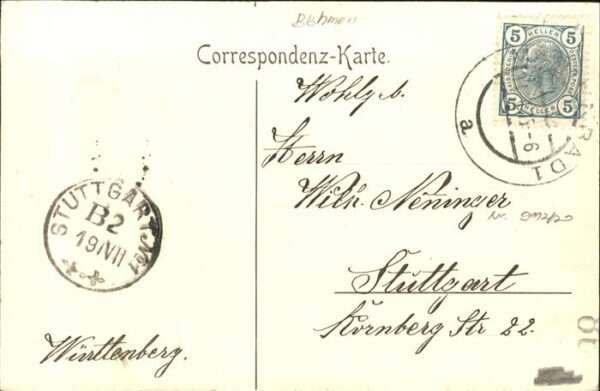 Böhmen
Correspondenz-Karte.
5 HELLER 5
5 HELLER 5
a
Wohlgeb.
Herrn
Wilh. Neninger
Stuttgart
Kornberg Str 22.
STUTTGART No 1
B2
19/VII
Württenberg.